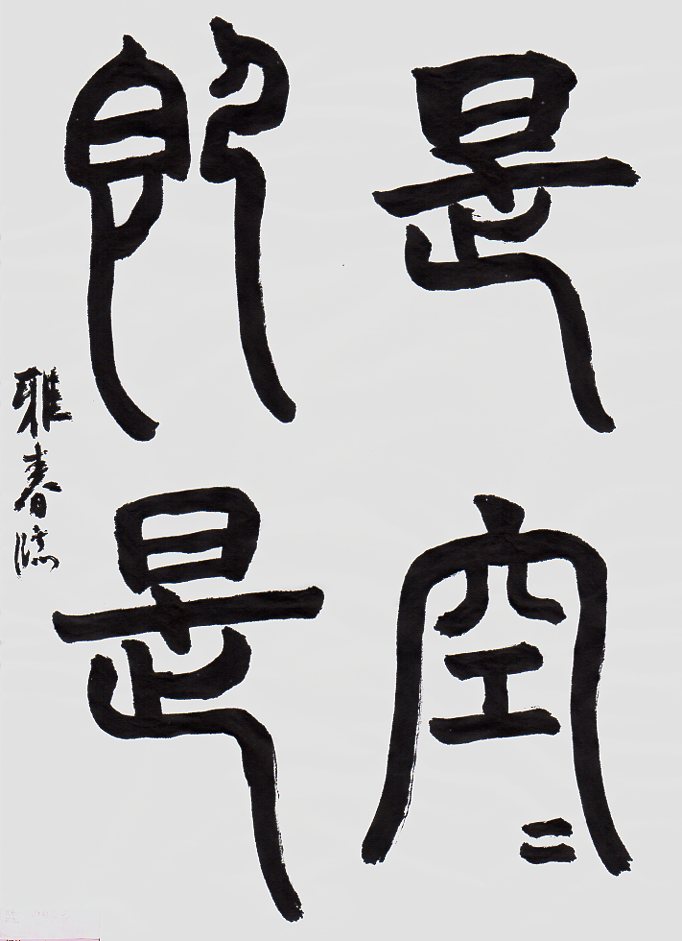 是空〻
即是
雅春臨